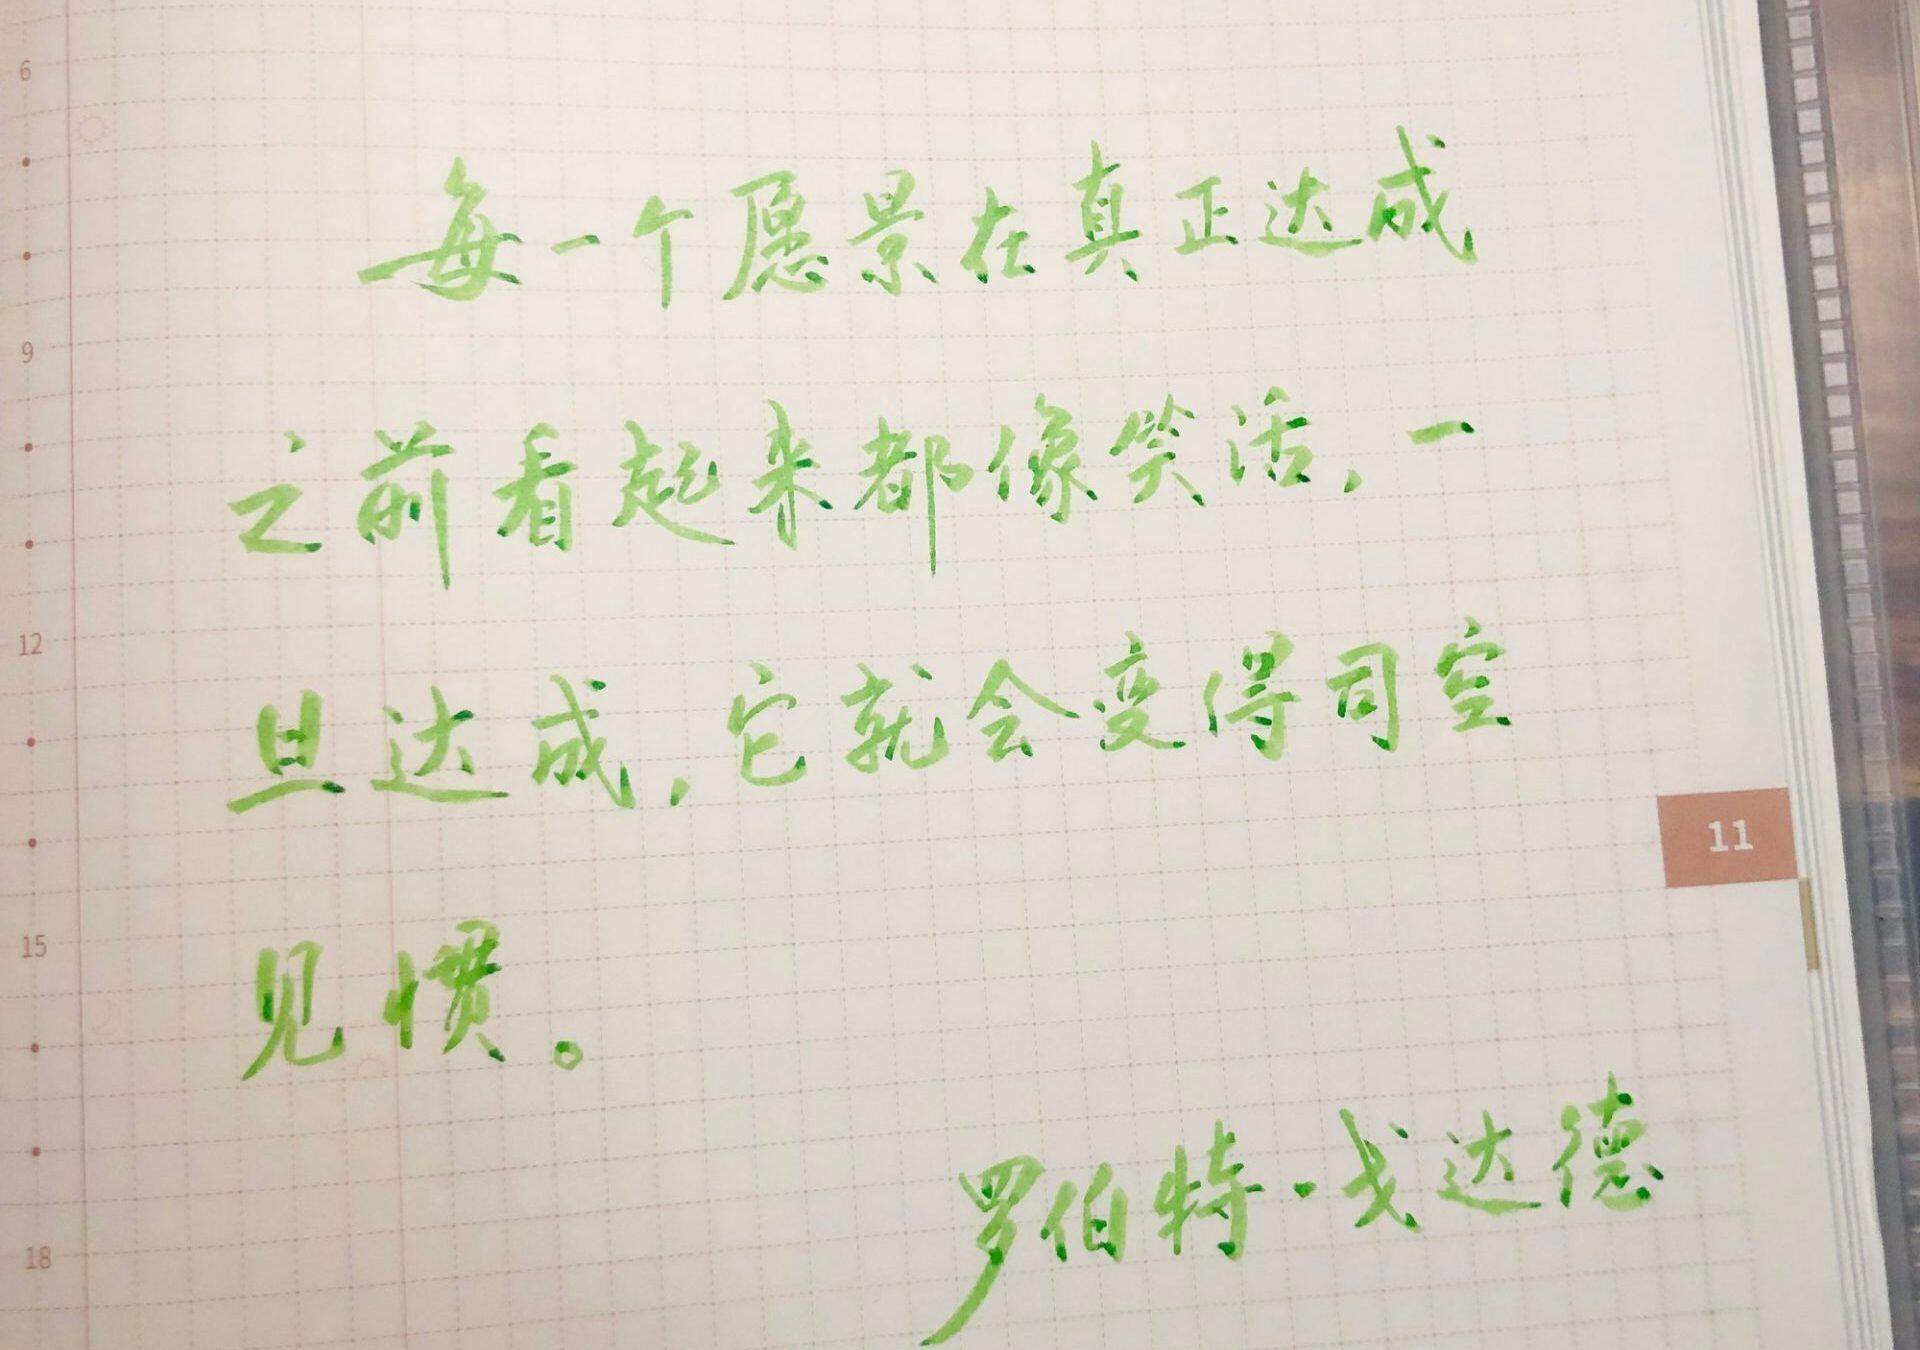 6
9
12
15
18
每一个愿景在真正达成
之前看起来都像笑活，一
旦达成，它就会变得司空
见惯。
罗伯特·戈达德
11